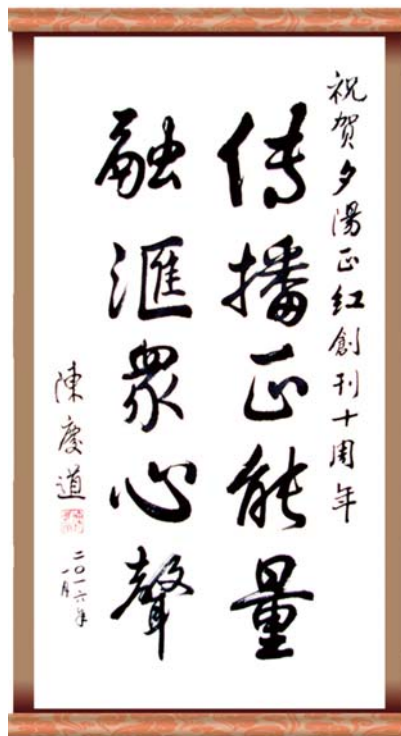 祝賀夕陽正紅創刊十周年
傳播正能量
融滙眾心聲
陳慶道
二〇一六年
一月